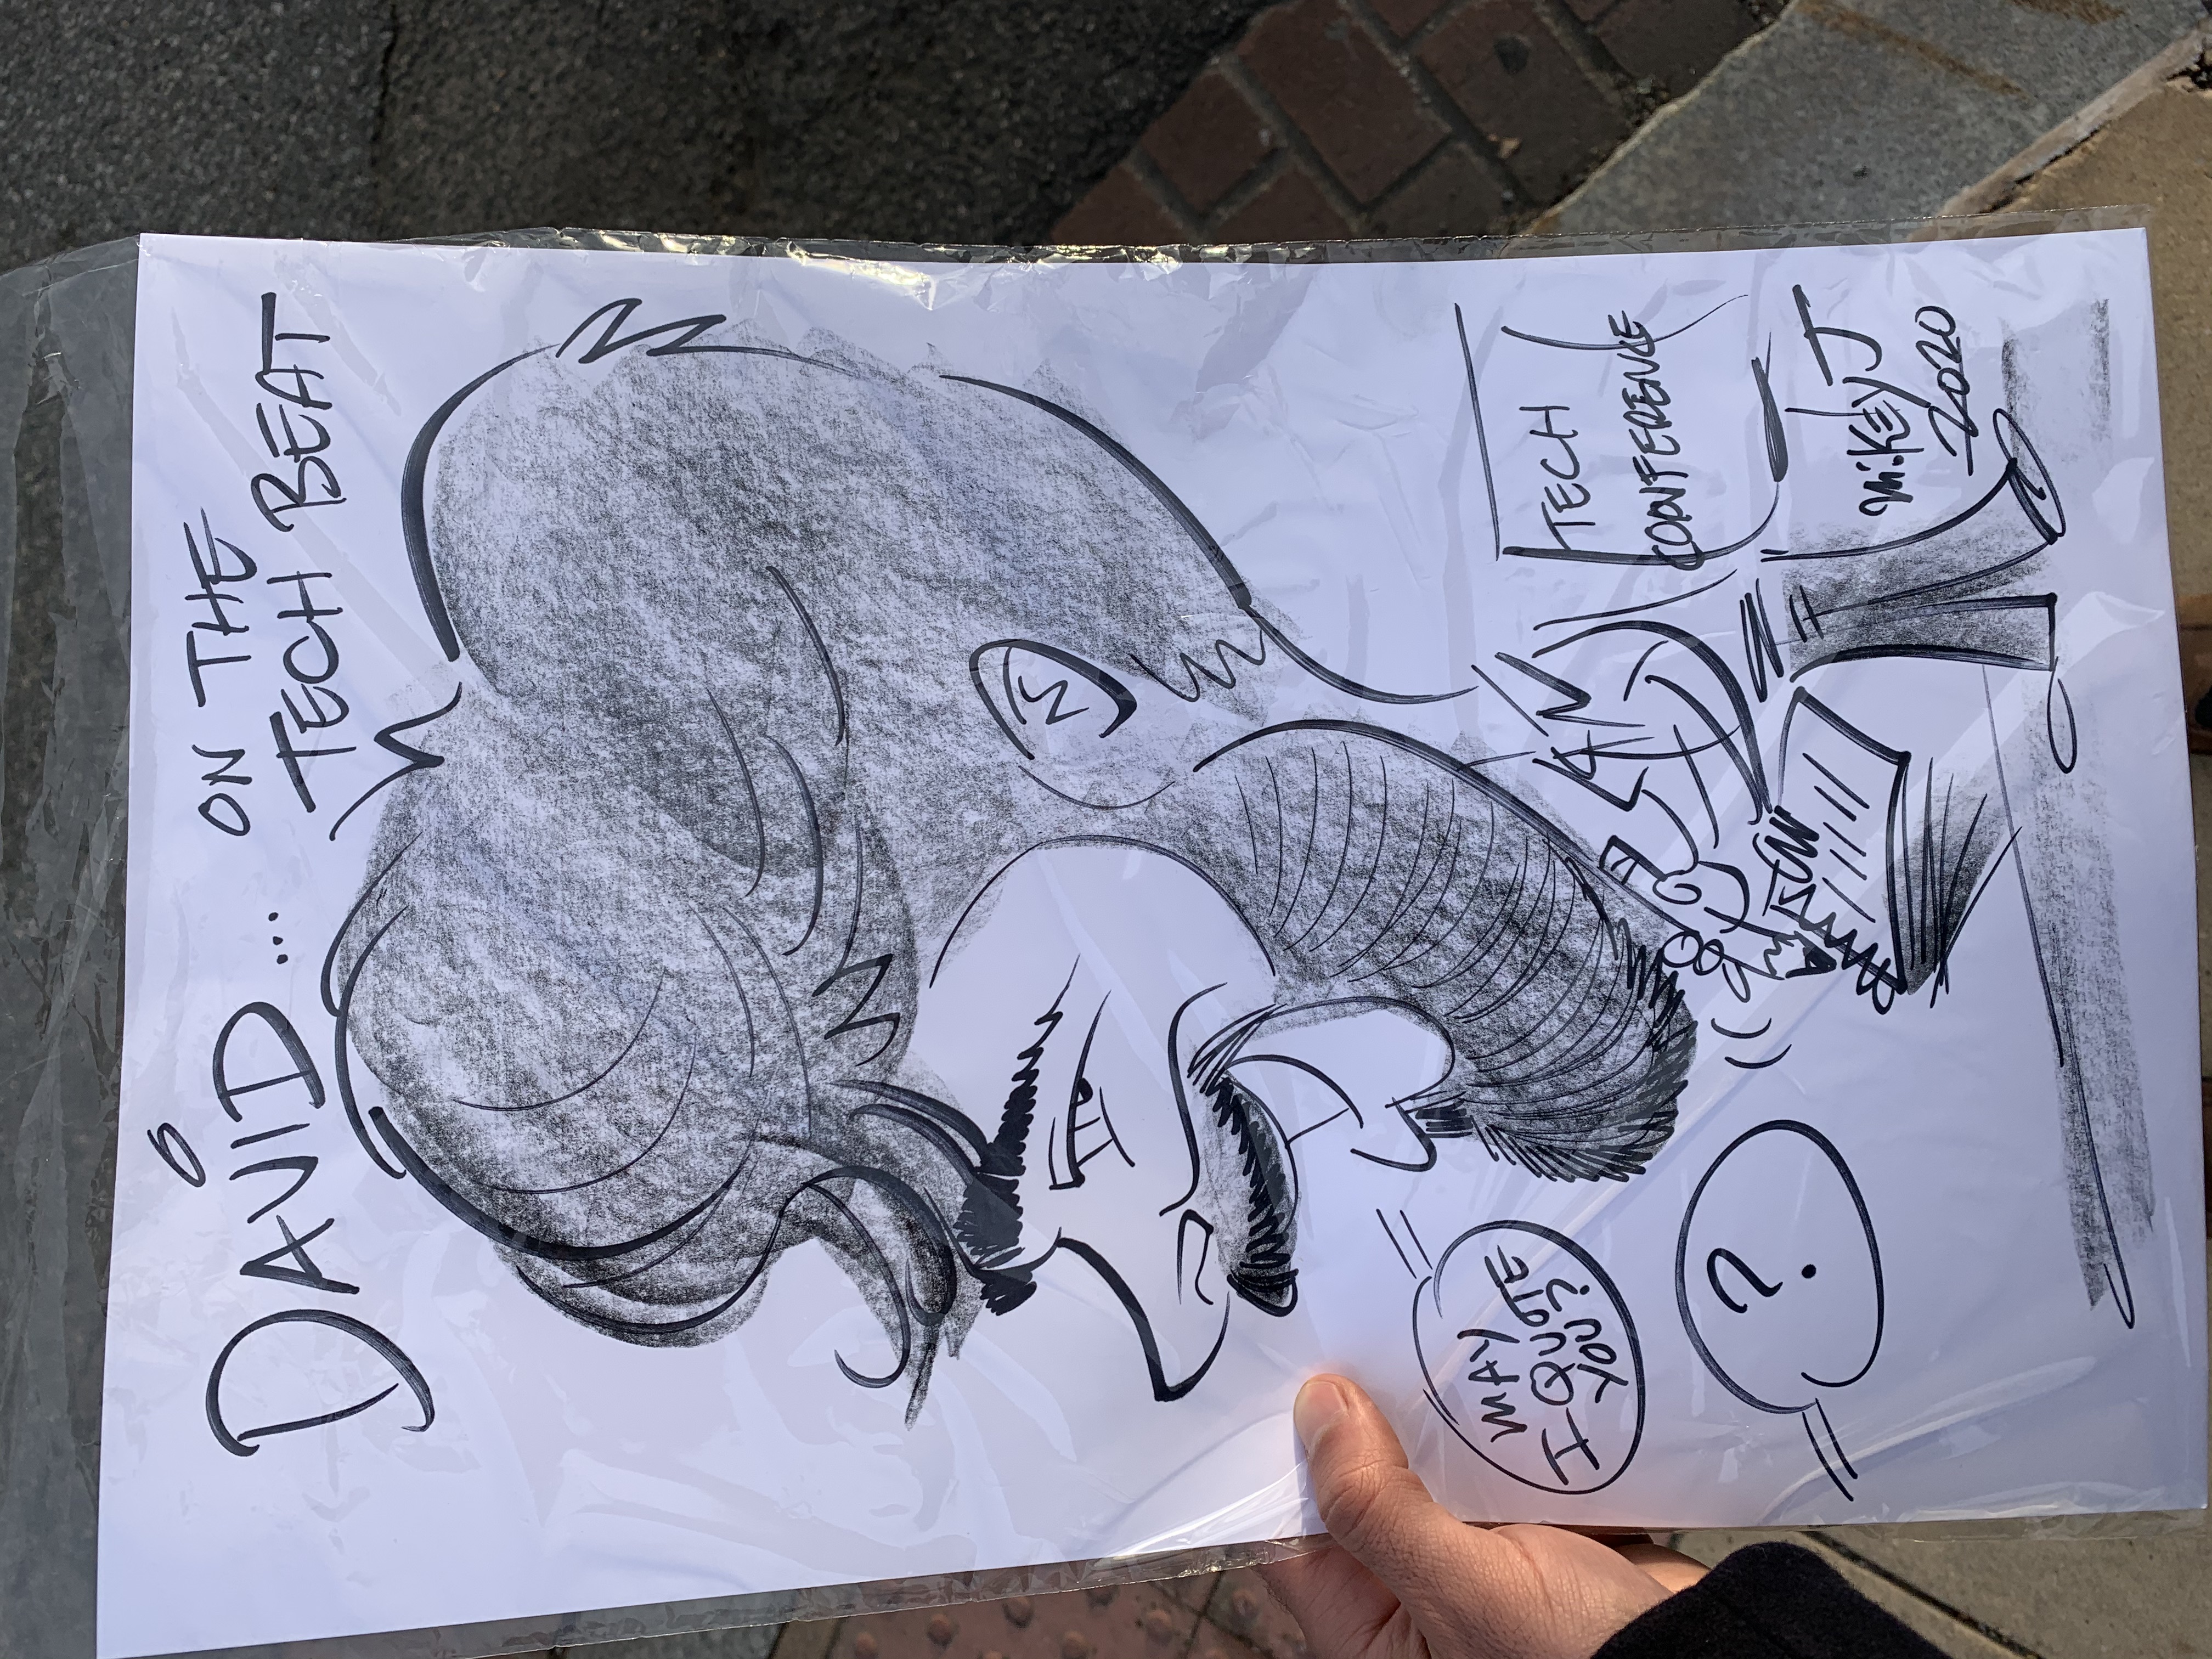 DAVID... ON THE
TECH BEAT
MAY
I QUOTE
YOU?
?
TECH
CONFERENCE
MIKEY J
2020